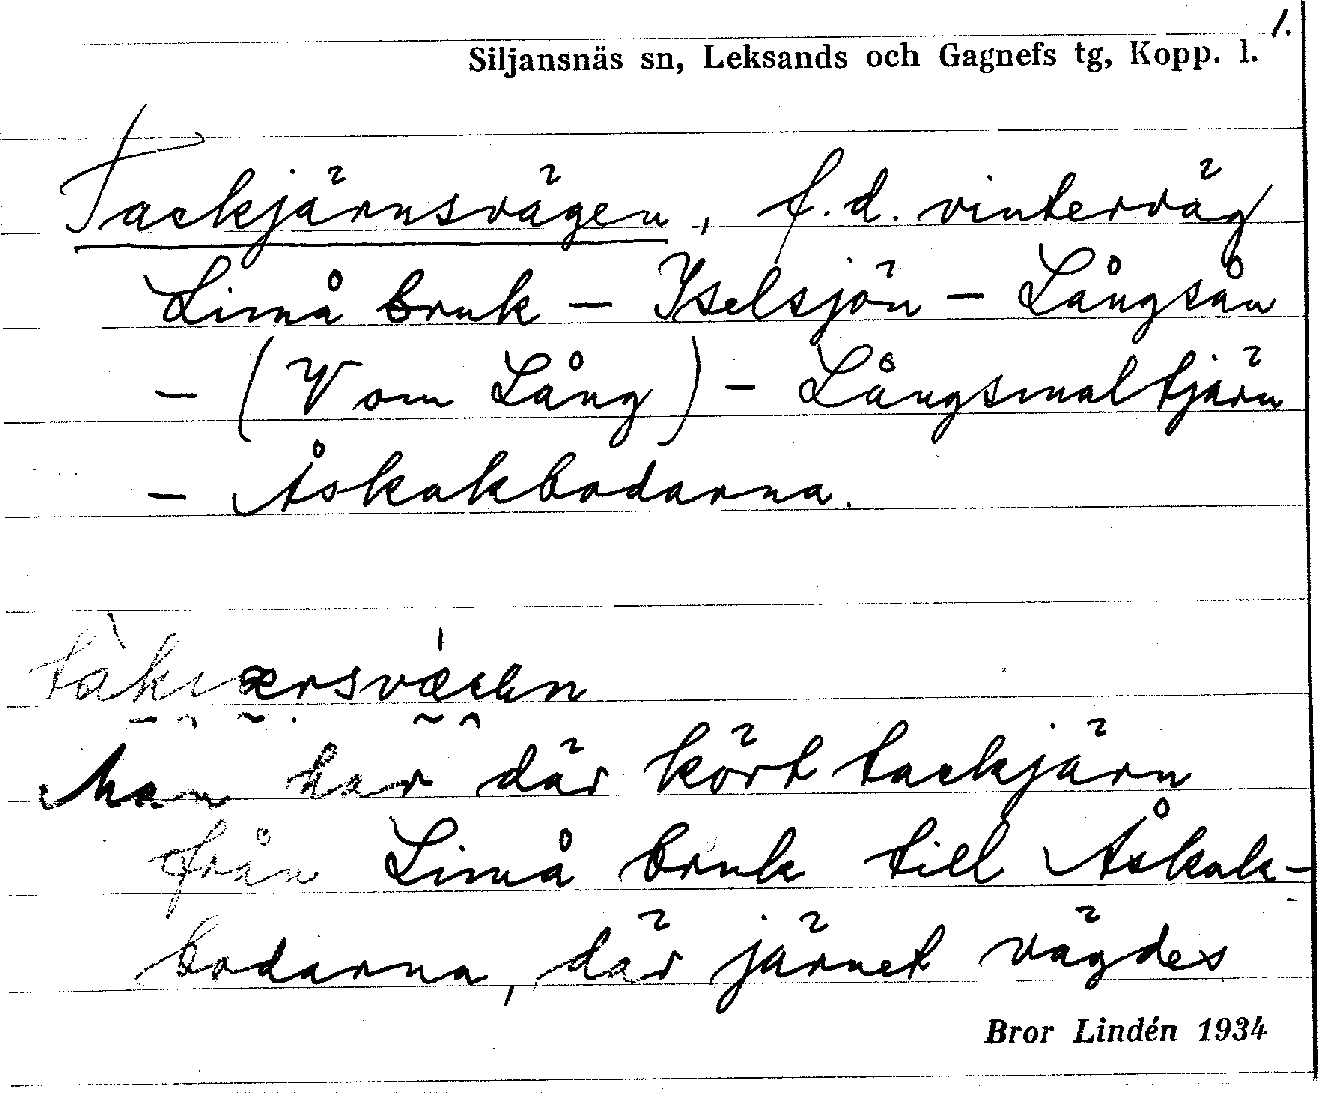 1.
Siljansnäs sn, Leksands och Gagnefs tg, Kopp. l.
Tackjärnsvägen, f.d. vinterväg
Limå bruk – Yselsjön – Långsån
– (V om Lång) – Långsmaltjärn
– Åskakbodarna.
Man har där kört tackjärn
från Limå bruk till Åskak-
bodarna, där järnet vägdes
Bror Lindén 1934